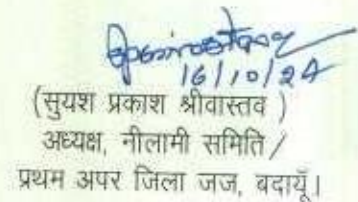 16/10/24
(सुयश प्रकाश श्रीवास्तव )
अध्यक्ष, नीलामी समिति /
प्रथम अपर जिला जज, बदायूँ।